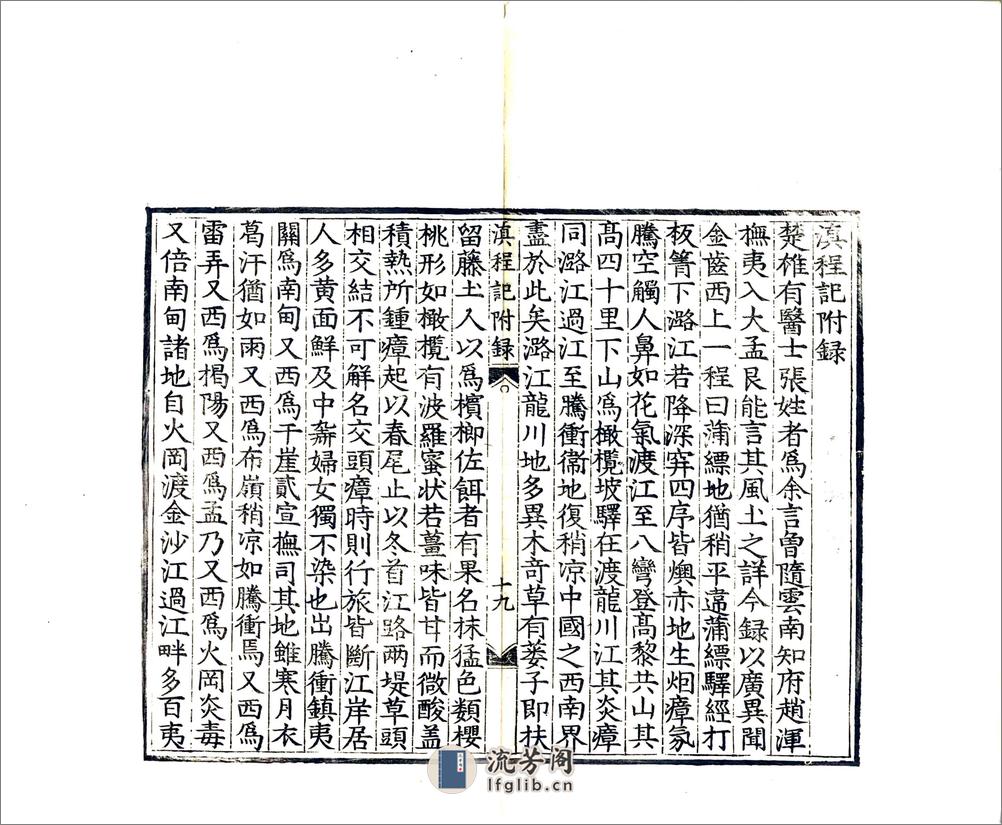 滇程記附録
楚雄有醫士張姓者爲余言曾隨雲南知府趙渾
撫夷入大孟艮能言其風土之詳今録以廣異聞
金齒西上一程曰蒲縹地猶稍平遠蒲縹驛經打
板箐下潞江若降深穽四序皆燠赤地生烟瘴氛
騰空觸人鼻如花氣渡江至八彎登高黎共山其
高四十里下山爲橄欖坡驛在渡龍川江其炎瘴
同潞江過江至騰衝衛地復稍凉中國之西南界
盡於此矣潞江龍川地多異木竒草有蔞子即扶
滇程記附録
十九
留藤土人以爲檳榔佐餌者有果名抹猛色類櫻
桃形如橄欖有波羅蜜状若薑味皆甘而微酸盖
積熱所鍾瘴起以春尾止以冬首江路兩堤草頭
相交結不可解名交頭瘴時則行旅皆斷江岸居
人多黄面鮮及中夀婦女獨不染也出騰衝鎮夷
關爲南甸又西爲千崖貳宣撫司其地雖寒月衣
葛汗猶如雨又西爲布嶺稍凉如騰衝焉又西爲
雷弄又西爲揭陽又西爲孟乃又西爲火岡炎毒
又倍南甸諸地自火岡渡金沙江過江畔多百夷
流芳阁
lfglib.cn